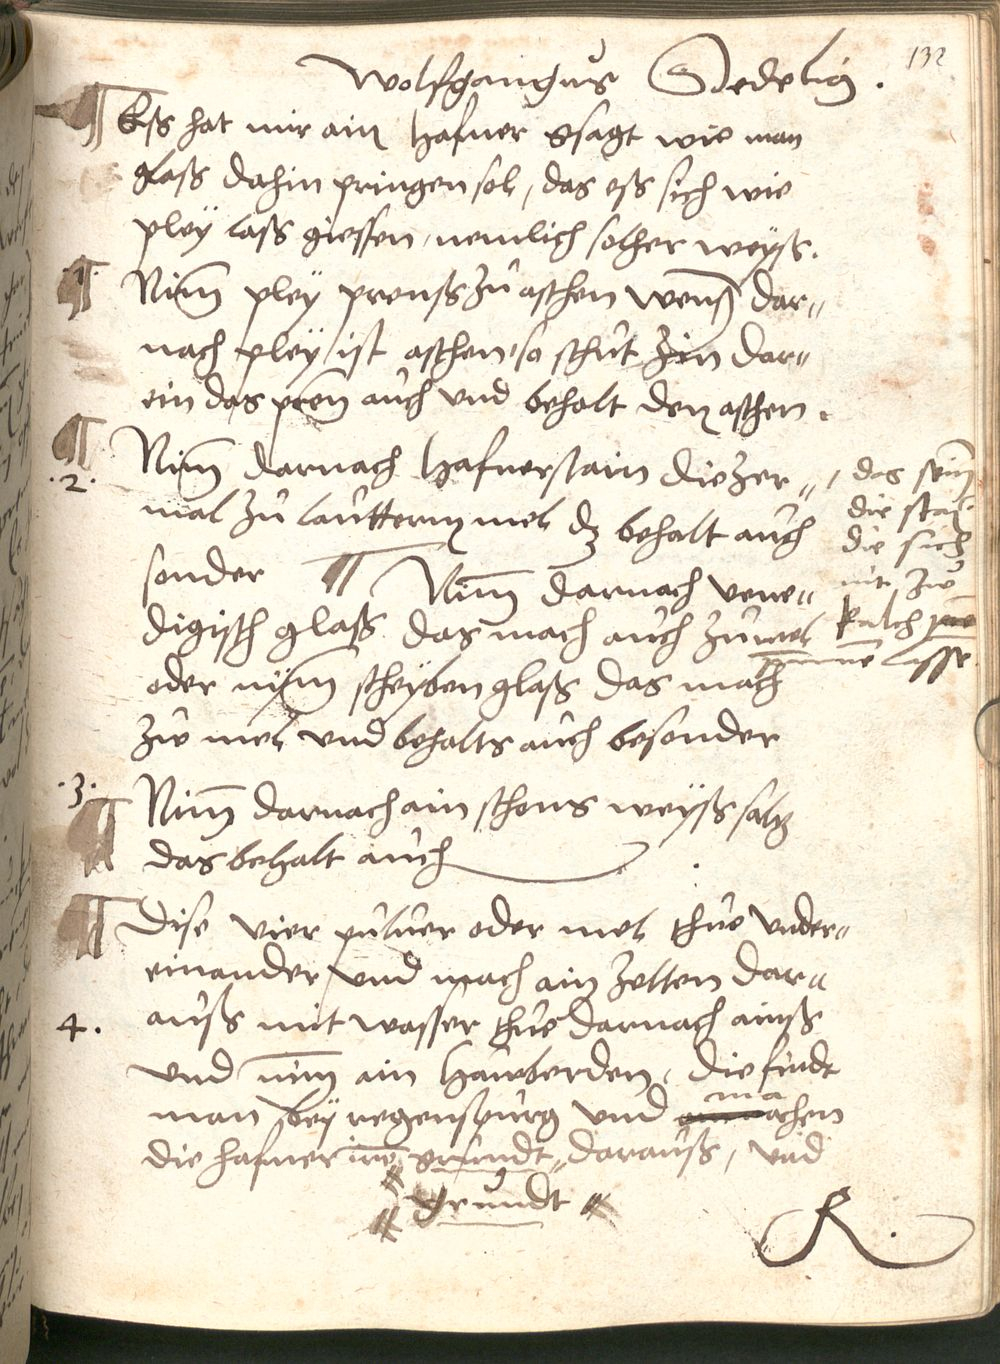 132
Wolfgangus Sedelig.
¶ Eß hat mir ain hafner gsagt wie man
glaß dahin pringen sol, das eß sich wie
pley lass giessen, nemlich solher weyß.
.1. ¶ Nim pley prenß zu aschen wenß dar„
nach pley ist aschen so schut zin dar„
ein das pren auch vnd behalt den aschen.
¶ .2. Nim darnach hafnerstain die zer„
mal zu lautterm mel dz behalt auch
sonder ¶ Nim darnach vene„
digisch glaß das mach auch zu mel
oder nym scheyben glaß das mach
zu mel vnd behalts auch besonder
, das sein
die stain
die sich
nit zu
kalch
prennen lasse
.3. ¶ Nim darnach ain schons weyß saltz
das behalt auch
¶ Dise vier puluer oder mel thue vnder„
einander vnd mach ain zelten dar„
4. auß mit wasser thue darnach ainß
vnd nim ain hawberden, die findt
man bey regenspurg vnd machen
die hafner ire grundt darauß, vnd
„ grundt „
R.